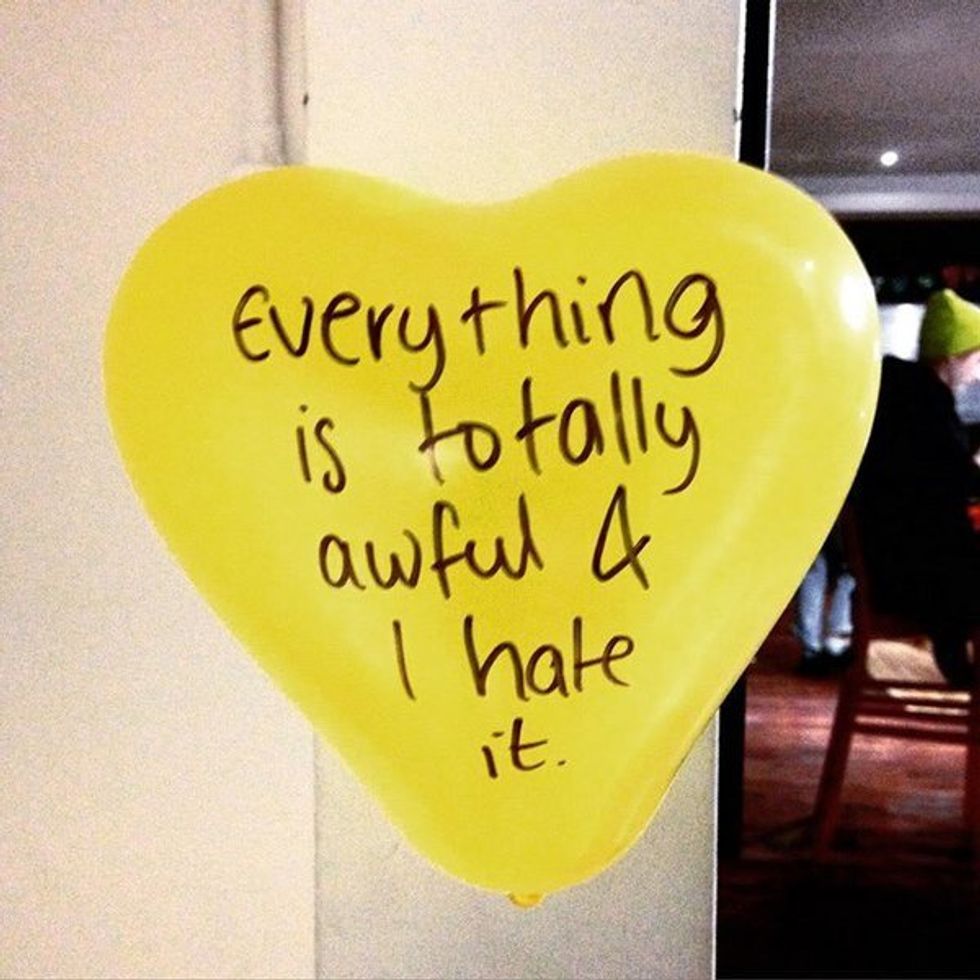 Everything
is totally
awful &
I hate
it.